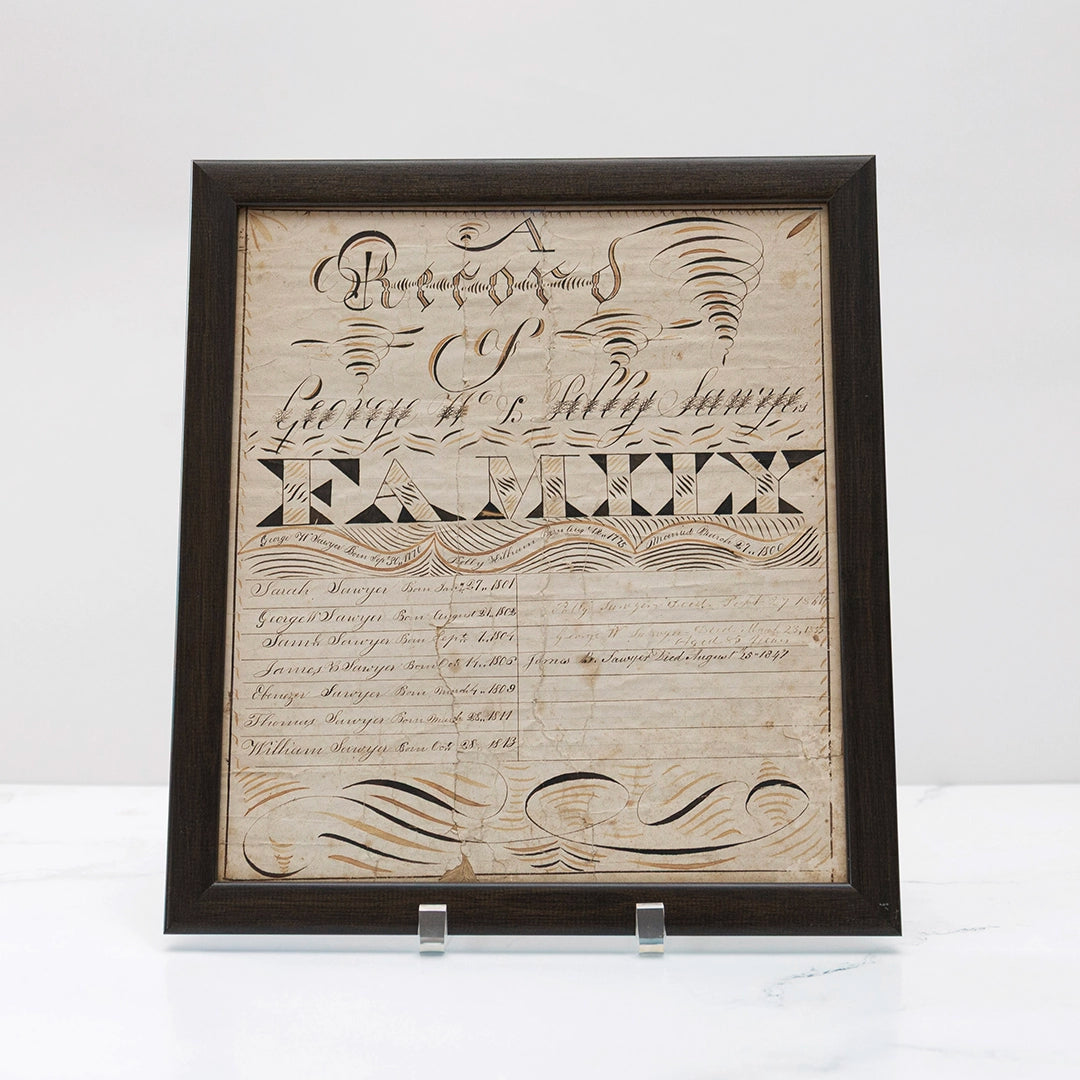 A
Record
Of
George W & Polly Sawyers
FAMILY
George W Sawyer Born Sep 30, 1776 Polly William Born Aug 18, 1775 Married March 27, 1800
Sarah Sawyer Born Jan 27, 1801
George W Sawyer Born August 21, 1802 Polly Sawyer Died Sept 27
Sam Sawyer Born Sep 1, 1804 George W Sawyer Died
James B Sawyer Born Oct 14, 1805 James B. Sawyer Died August 25 1847
Ebenezer Sawyer Born March 4, 1809
Thomas Sawyer Born March 28, 1811
William Sawyer Born Oct 28, 1813